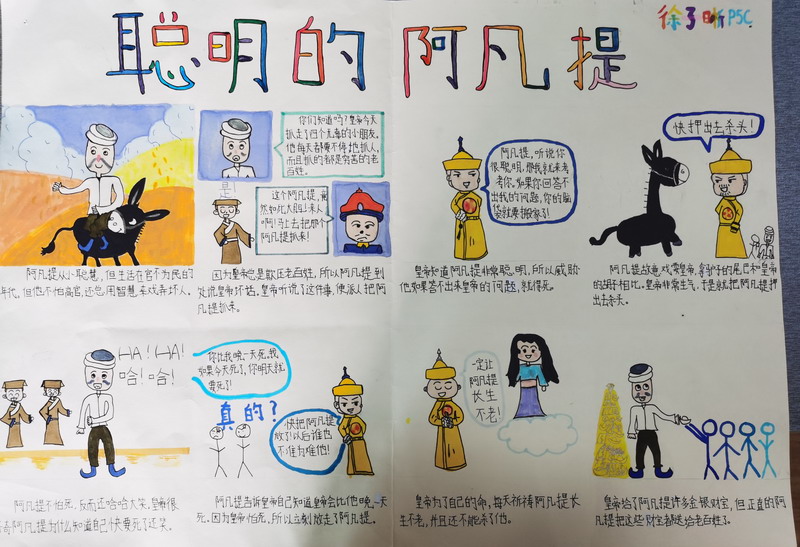 聪明的阿凡提
徐子晰P5C
你们知道吗？皇帝今天
抓走了四个无辜的小朋友,
他每天都要不停地抓人,
而且抓的都是穷苦的老
百姓。
是!
这个阿凡提,竟
然如此大胆!来人
啊!马上去把那个
阿凡提抓来!
阿凡提从小聪慧,但生活在官不为民的
年代。但他不怕高官,还总用智慧来戏弄坏人。
因为皇帝总是欺压老百姓,所以阿凡提到
处说皇帝坏话。皇帝听说了这件事,便派人把阿
凡提抓来。
阿凡提,听说你
很聪明,那我就来考
考你。如果你回答不
出我的问题,你的脑
袋就要搬家了!
皇帝知道阿凡提非常聪明,所以威胁
他如果答不出来皇帝的问题,就得死。
快押出去杀头!
阿凡提故意戏弄皇帝,拿驴子的尾巴和皇帝
的胡子相比。皇帝非常生气,于是就把阿凡提押
出去杀头。
HA! HA!
哈!哈!
阿凡提不怕死,反而还哈哈大笑。皇帝很
好奇阿凡提为什么知道自己快要死了还笑。
你比我晚一天死,我
如果今天死了,你明天就
要死了!
真的?
快把阿凡提
放了!以后谁也
不准为难他!
阿凡提告诉皇帝自己知道皇帝会比他晚一天
死。因为皇帝怕死,所以立刻放走了阿凡提。
一定让
阿凡提
长生
不老!
皇帝为了自己的命,每天祈祷阿凡提长
生不老,并且还不能杀了他。
皇帝给了阿凡提许多金银财宝,但正直的阿
凡提把这些财宝都送给老百姓了。